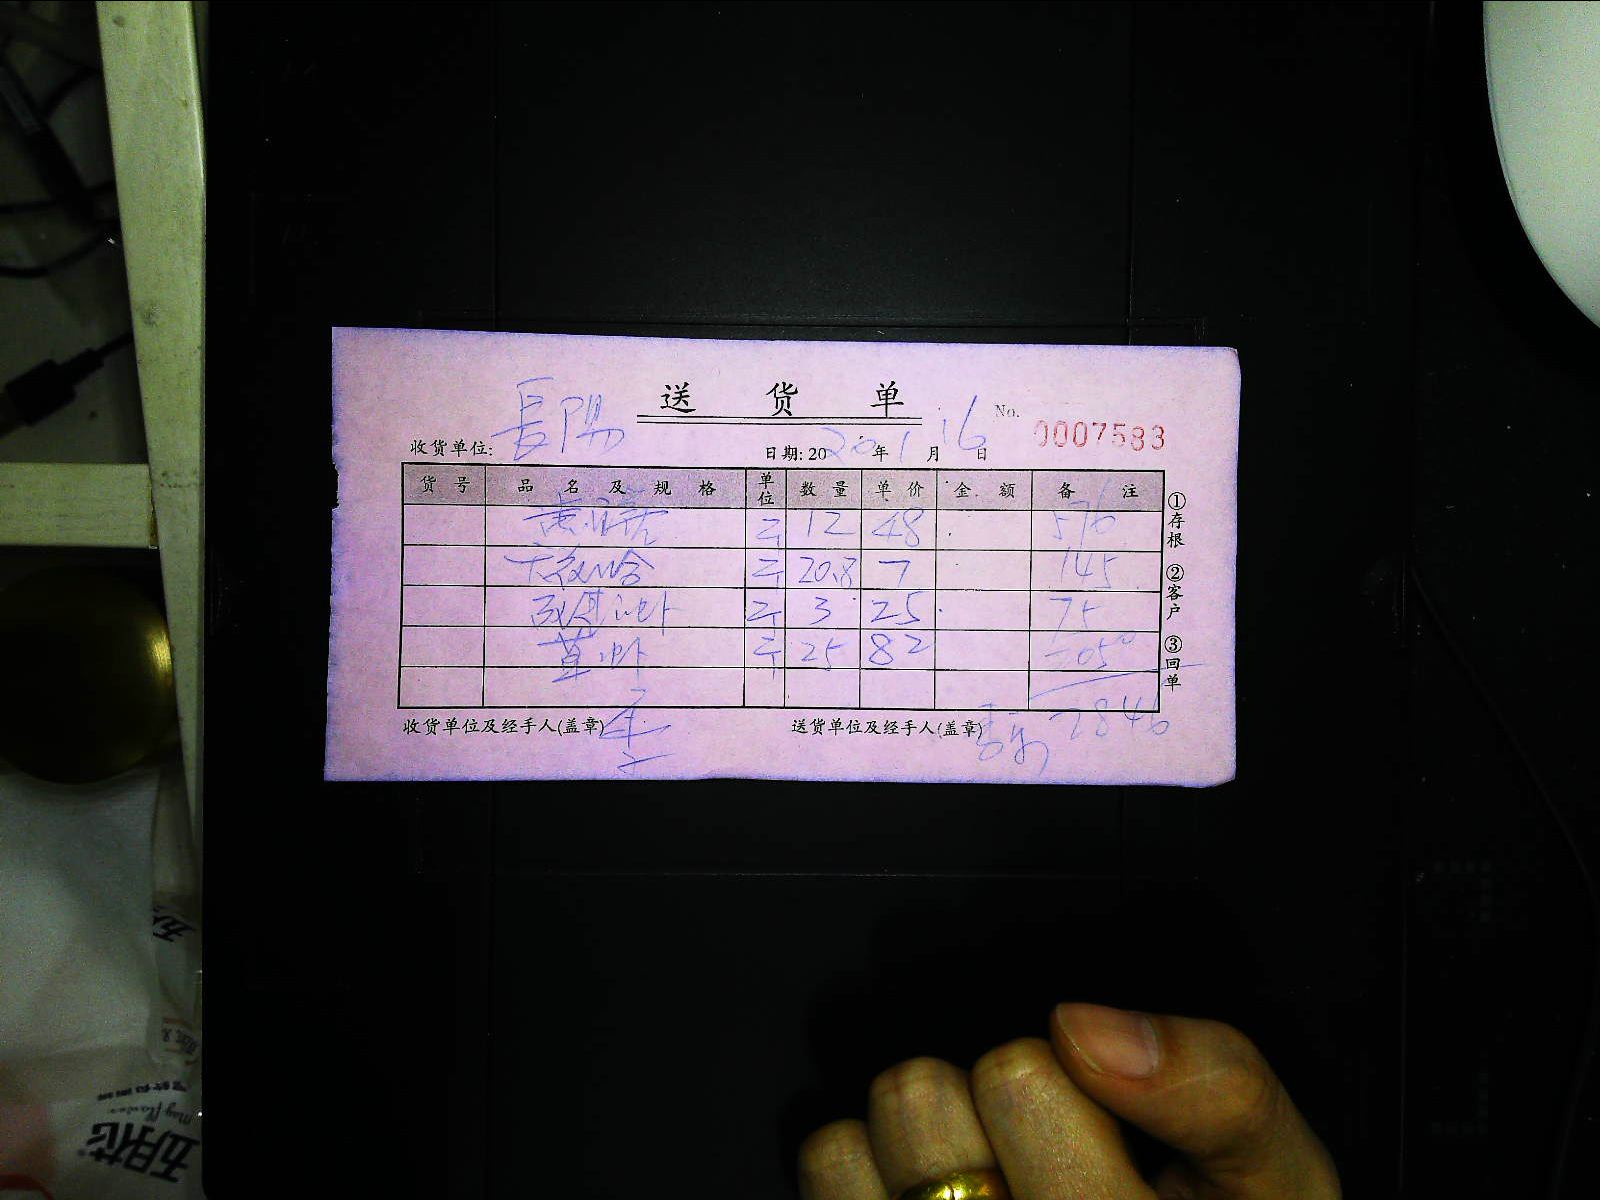 送 货 单
No. 0007583
收货单位: 長陽 日期: 2020年1月16日
货号 品名及规格 单位 数量 单价 金额 备注
斤 12 48 576
斤 20.8 7 145
斤 3 25 75
草虾 斤 25 82 2050
2846
收货单位及经手人(盖章) 送货单位及经手人(盖章)
①存根 ②客户 ③回单
五月花
Mayflower
五月花